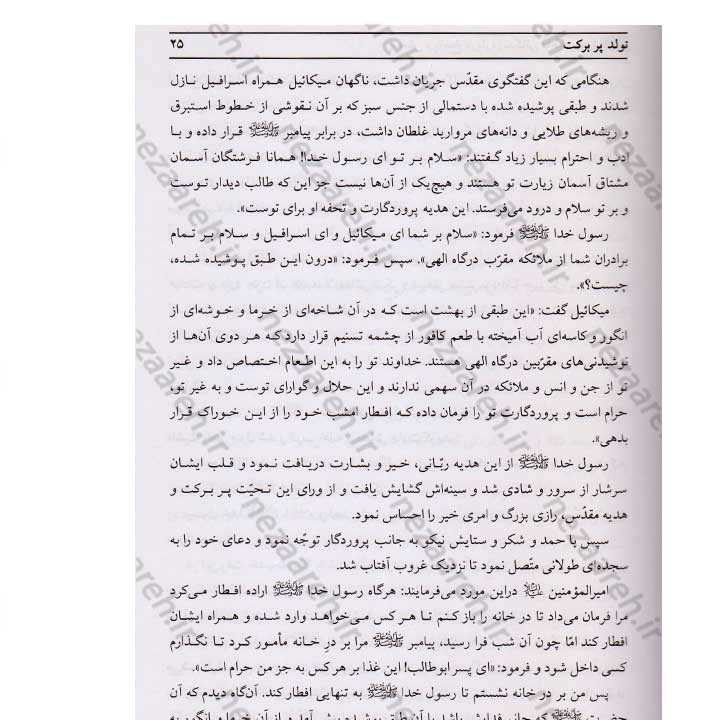 تولد پر برکت ۲۵
هنگامی که این گفتگوی مقدّس جریان داشت، ناگهان میکائیل همراه اسرافیل نازل
شدند و طبقی پوشیده شده با دستمالی از جنس سبز که بر آن نقوشی از خطوط استبرق
و ریشه‌های طلایی و دانه‌های مروارید غلطان داشت، در برابر پیامبر ﷺ قرار داده و با
ادب و احترام بسیار زیاد گفتند: «سلام بر تو ای رسول خدا! همانا فرشتگان آسمان
مشتاق آسمان زیارت تو هستند و هیچ‌یک از آن‌ها نیست جز این که طالب دیدار توست
و بر تو سلام و درود می‌فرستد. این هدیه پروردگارت و تحفه او برای توست».
رسول خدا ﷺ فرمود: «سلام بر شما ای میکائیل و ای اسرافیل و سلام بر تمام
برادران شما از ملائکه مقرّب درگاه الهی». سپس فرمود: «درون این طبق پوشیده شده،
چیست؟».
میکائیل گفت: «این طبقی از بهشت است که در آن شاخه‌ای از خرما و خوشه‌ای از
انگور و کاسه‌ای آب آمیخته با طعم کافور از چشمه تسنیم قرار دارد که هر دوی آن‌ها از
نوشیدنی‌های مقرّبین درگاه الهی هستند. خداوند تو را به این اطعام اختصاص داد و غیر
تو از جن و انس و ملائکه در آن سهمی ندارند و این حلال و گوارای توست و به غیر تو،
حرام است و پروردگارت تو را فرمان داده که افطار امشب خود را از این خوراک قرار
بدهی».
رسول خدا ﷺ از این هدیه ربّانی، خیر و بشارت دریافت نمود و قلب ایشان
سرشار از سرور و شادی شد و سینه‌اش گشایش یافت و از ورای این تحیّت پر برکت و
هدیه مقدّس، رازی بزرگ و امری خیر را احساس نمود.
سپس با حمد و شکر و ستایش نیکو به جانب پروردگار توجّه نمود و دعای خود را به
سجده‌ای طولانی متّصل نمود تا نزدیک غروب آفتاب شد.
امیرالمؤمنین در‌این مورد می‌فرمایند: هرگاه رسول خدا ﷺ اراده افطار می‌کرد
مرا فرمان می‌داد تا در خانه را باز کنم تا هر کس می‌خواهد وارد شده و همراه ایشان
افطار کند امّا چون آن شب فرا رسید، پیامبر ﷺ مرا بر درِ خانه مأمور کرد تا نگذارم
کسی داخل شود و فرمود: «ای پسر ابوطالب! این غذا بر هر کس به جز من حرام است».
پس من بر در خانه نشستم تا رسول خدا ﷺ به تنهایی افطار کند. آن‌گاه دیدم که آن
nezaareh.ir